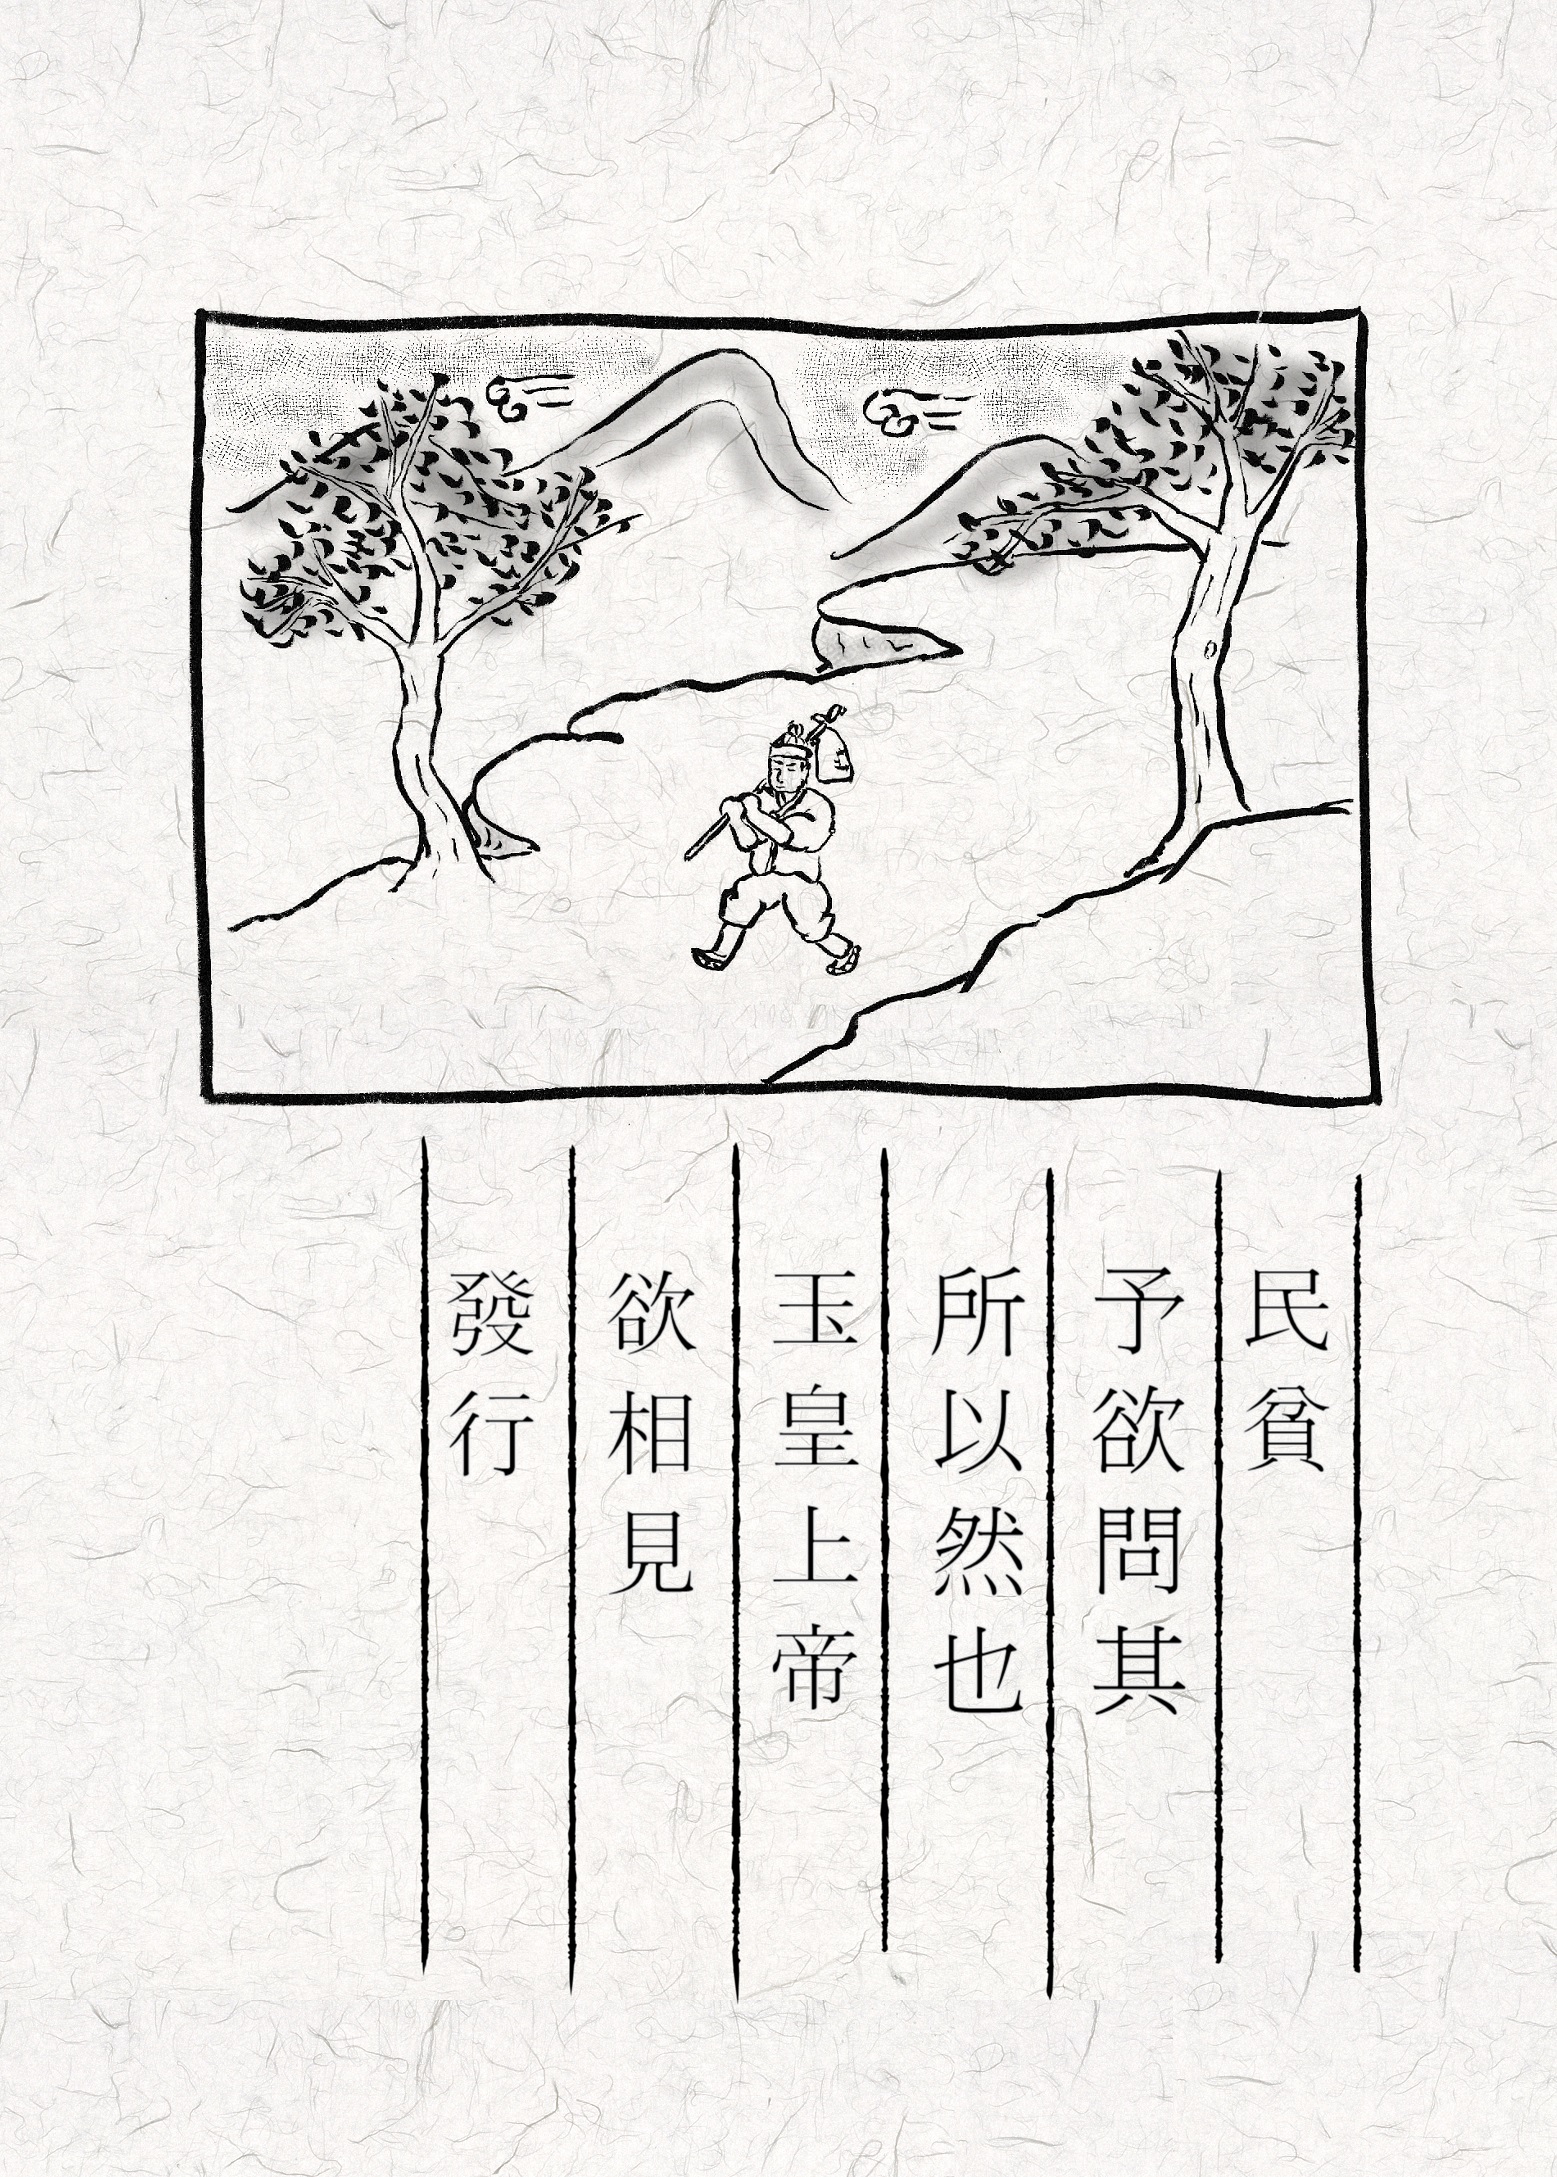 民貧
予欲問其
所以然也
玉皇上帝
欲相見
發行